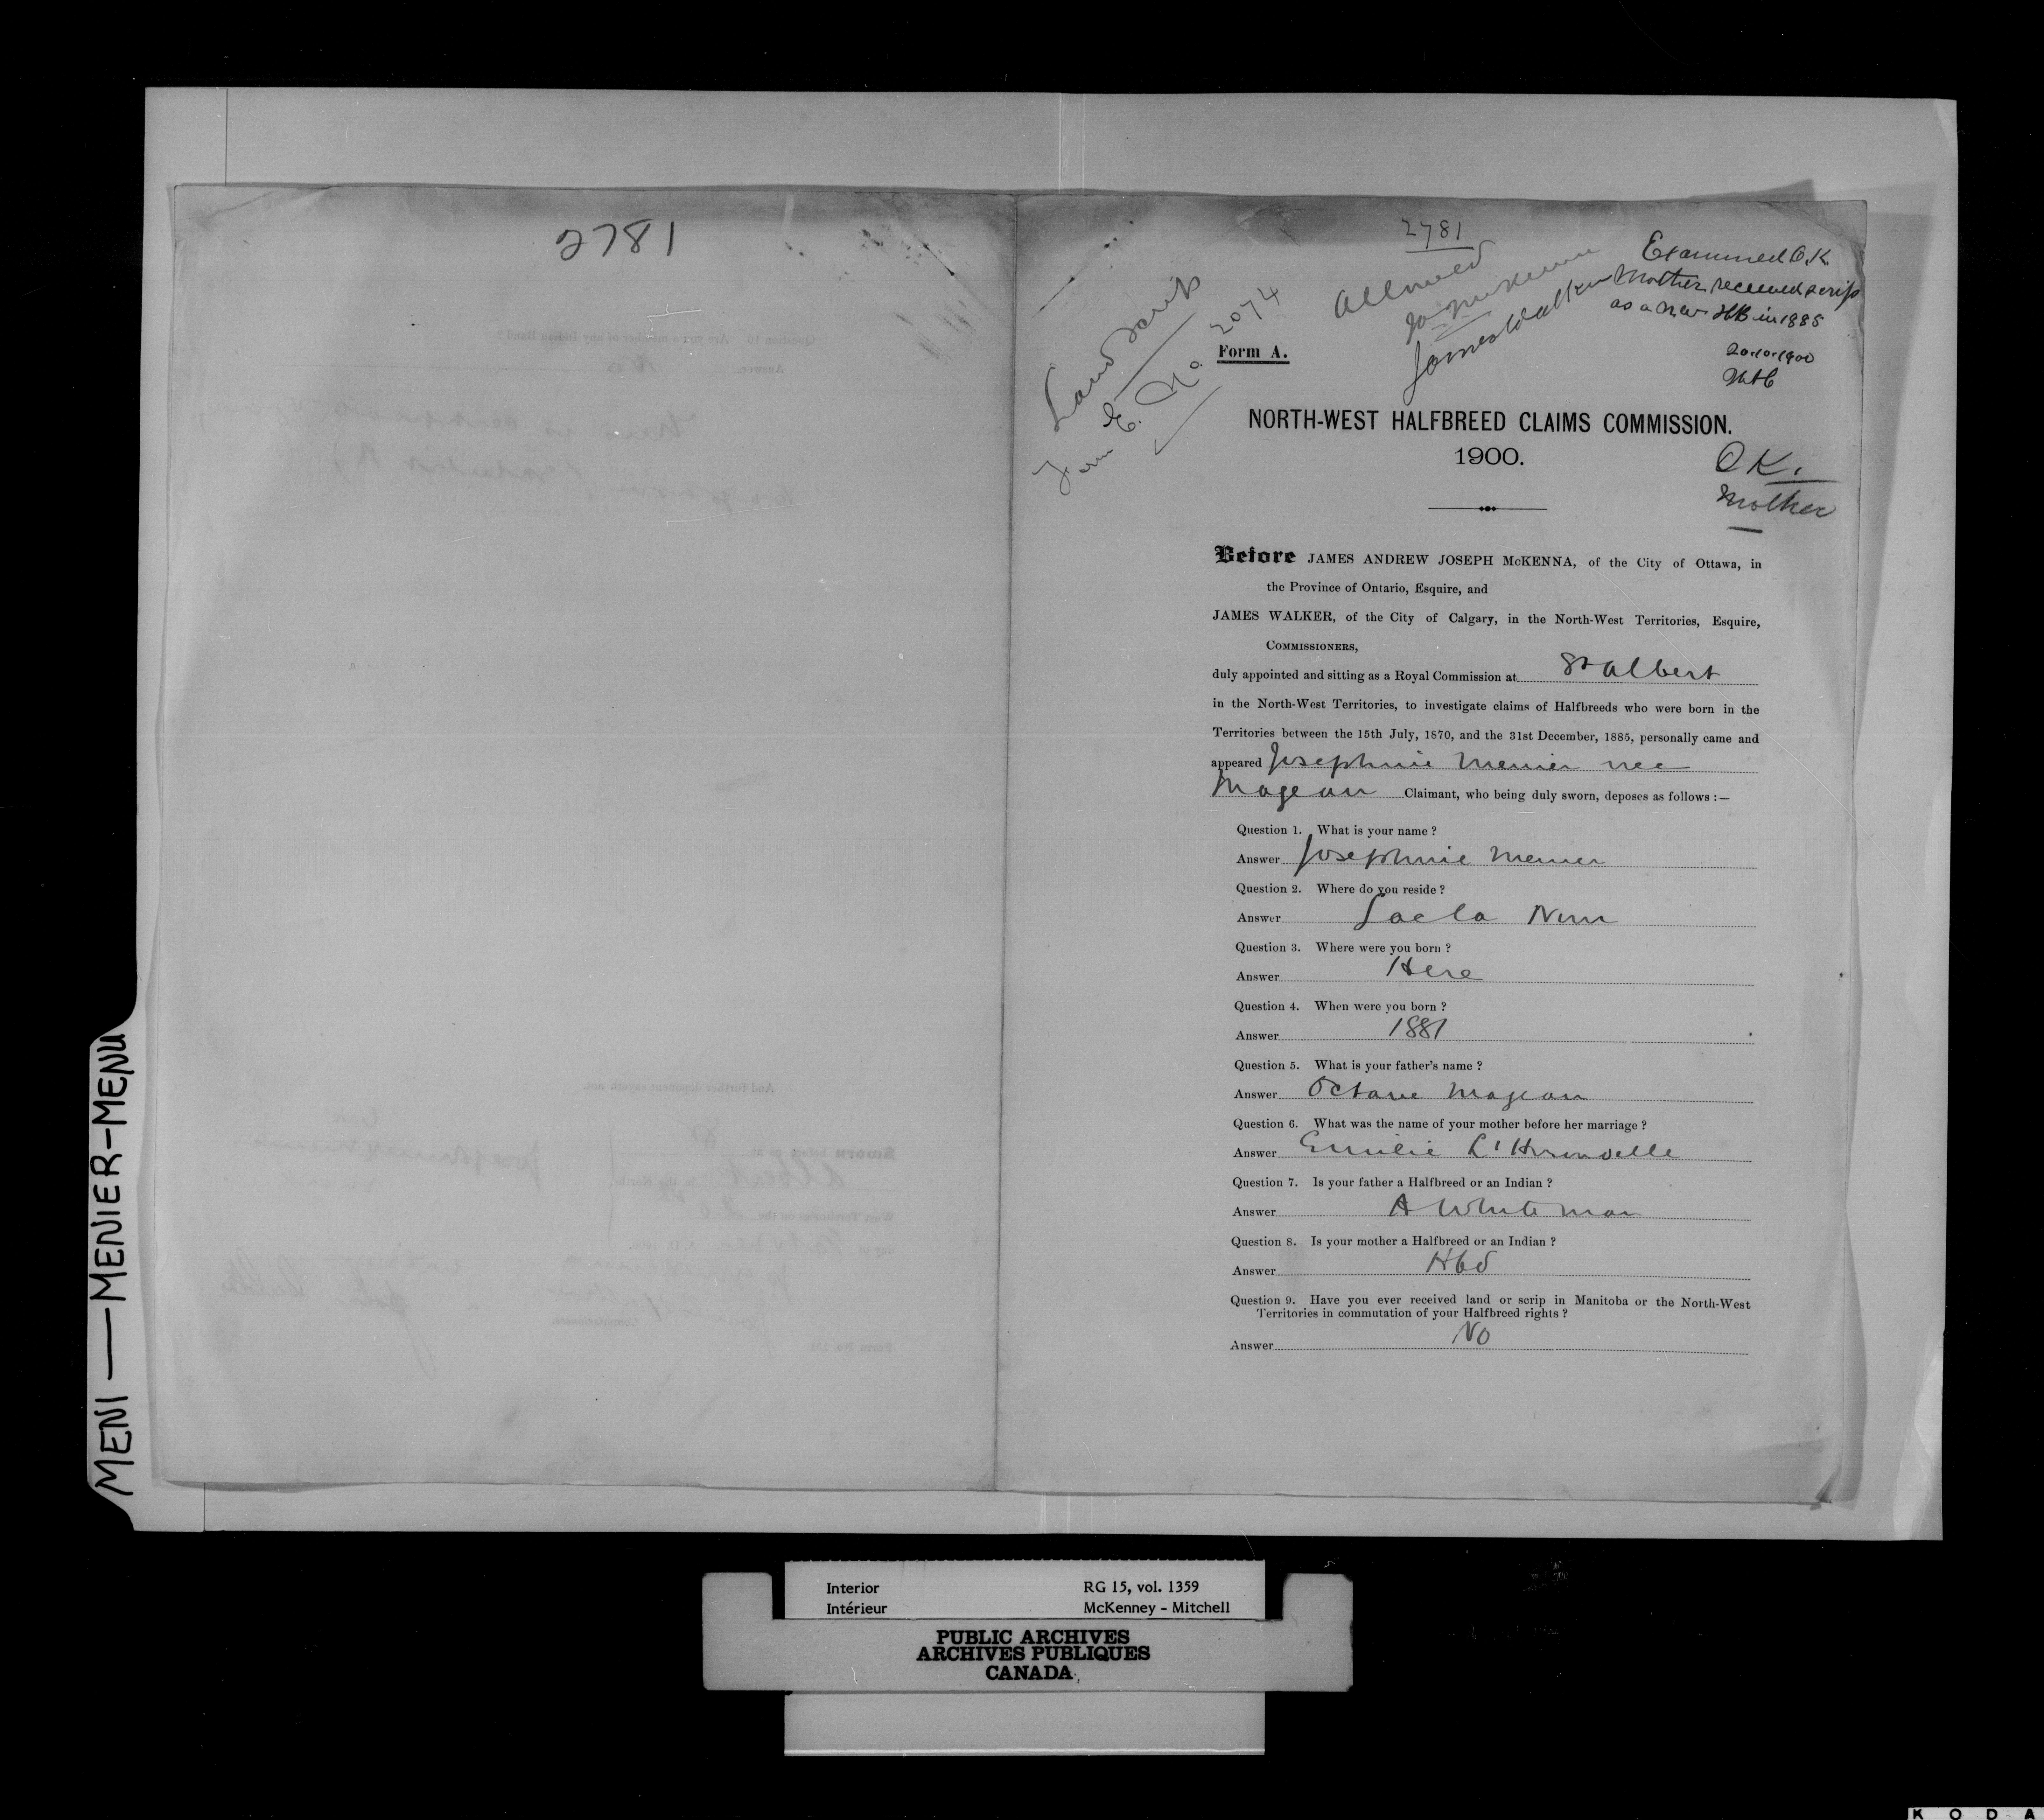 2781
MENI — MENIER-MENU
2781
Land Scrip
Form E. No. 2074
Allowed
James Walker
Examined O.K.
Mother received scrip
as a N.W. HB in 1885
20.10.1900
Form A.
NORTH-WEST HALFBREED CLAIMS COMMISSION.
1900.
O K.
Mother
Before JAMES ANDREW JOSEPH McKENNA, of the City of Ottawa, in
the Province of Ontario, Esquire, and
JAMES WALKER, of the City of Calgary, in the North-West Territories, Esquire,
COMMISSIONERS,
duly appointed and sitting as a Royal Commission at St Albert
in the North-West Territories, to investigate claims of Halfbreeds who were born in the
Territories between the 15th July, 1870, and the 31st December, 1885, personally came and
appeared Josephine Menier nee
Magean Claimant, who being duly sworn, deposes as follows :—
Question 1. What is your name ?
Answer Josephine Menier
Question 2. Where do you reside ?
Answer Lac la Nun
Question 3. Where were you born ?
Answer Here
Question 4. When were you born ?
Answer 1881
Question 5. What is your father's name ?
Answer Octave Magean
Question 6. What was the name of your mother before her marriage ?
Answer Emilie L'Hirondelle
Question 7. Is your father a Halfbreed or an Indian ?
Answer A White man
Question 8. Is your mother a Halfbreed or an Indian ?
Answer Hbd
Question 9. Have you ever received land or scrip in Manitoba or the North-West
Territories in commutation of your Halfbreed rights ?
Answer No
Interior RG 15, vol. 1359
Intérieur McKenney - Mitchell
PUBLIC ARCHIVES
ARCHIVES PUBLIQUES
CANADA
K O D A